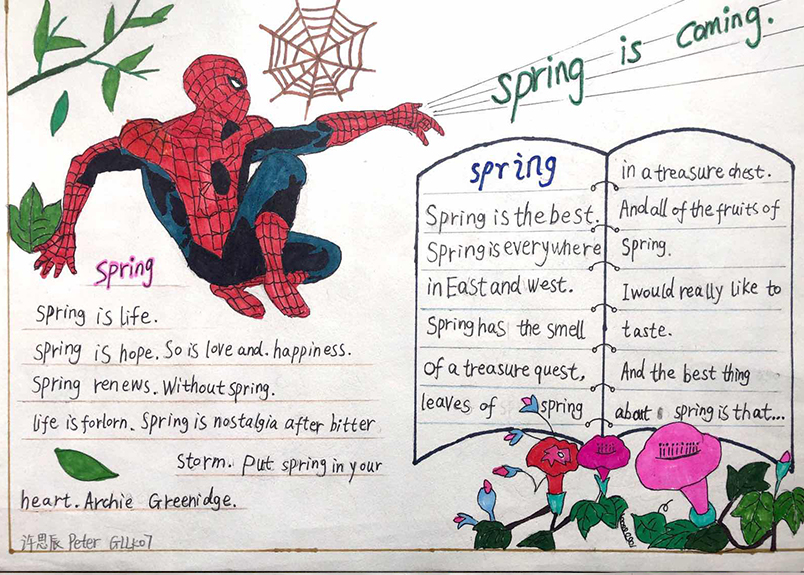 spring is coming.
spring
Spring is life.
Spring is hope. So is love and. happiness.
Spring renews. Without spring.
life is forlorn. Spring is nostalgia after bitter
Storm. Put spring in your
heart. Archie Greenidge.
许思辰 Peter GLLK07
spring
Spring is the best.
Spring is everywhere
in East and west.
Spring has the smell
of a treasure quest,
leaves of spring
in a treasure chest.
And all of the fruits of
Spring.
I would really like to
taste.
And the best thing
about spring is that...